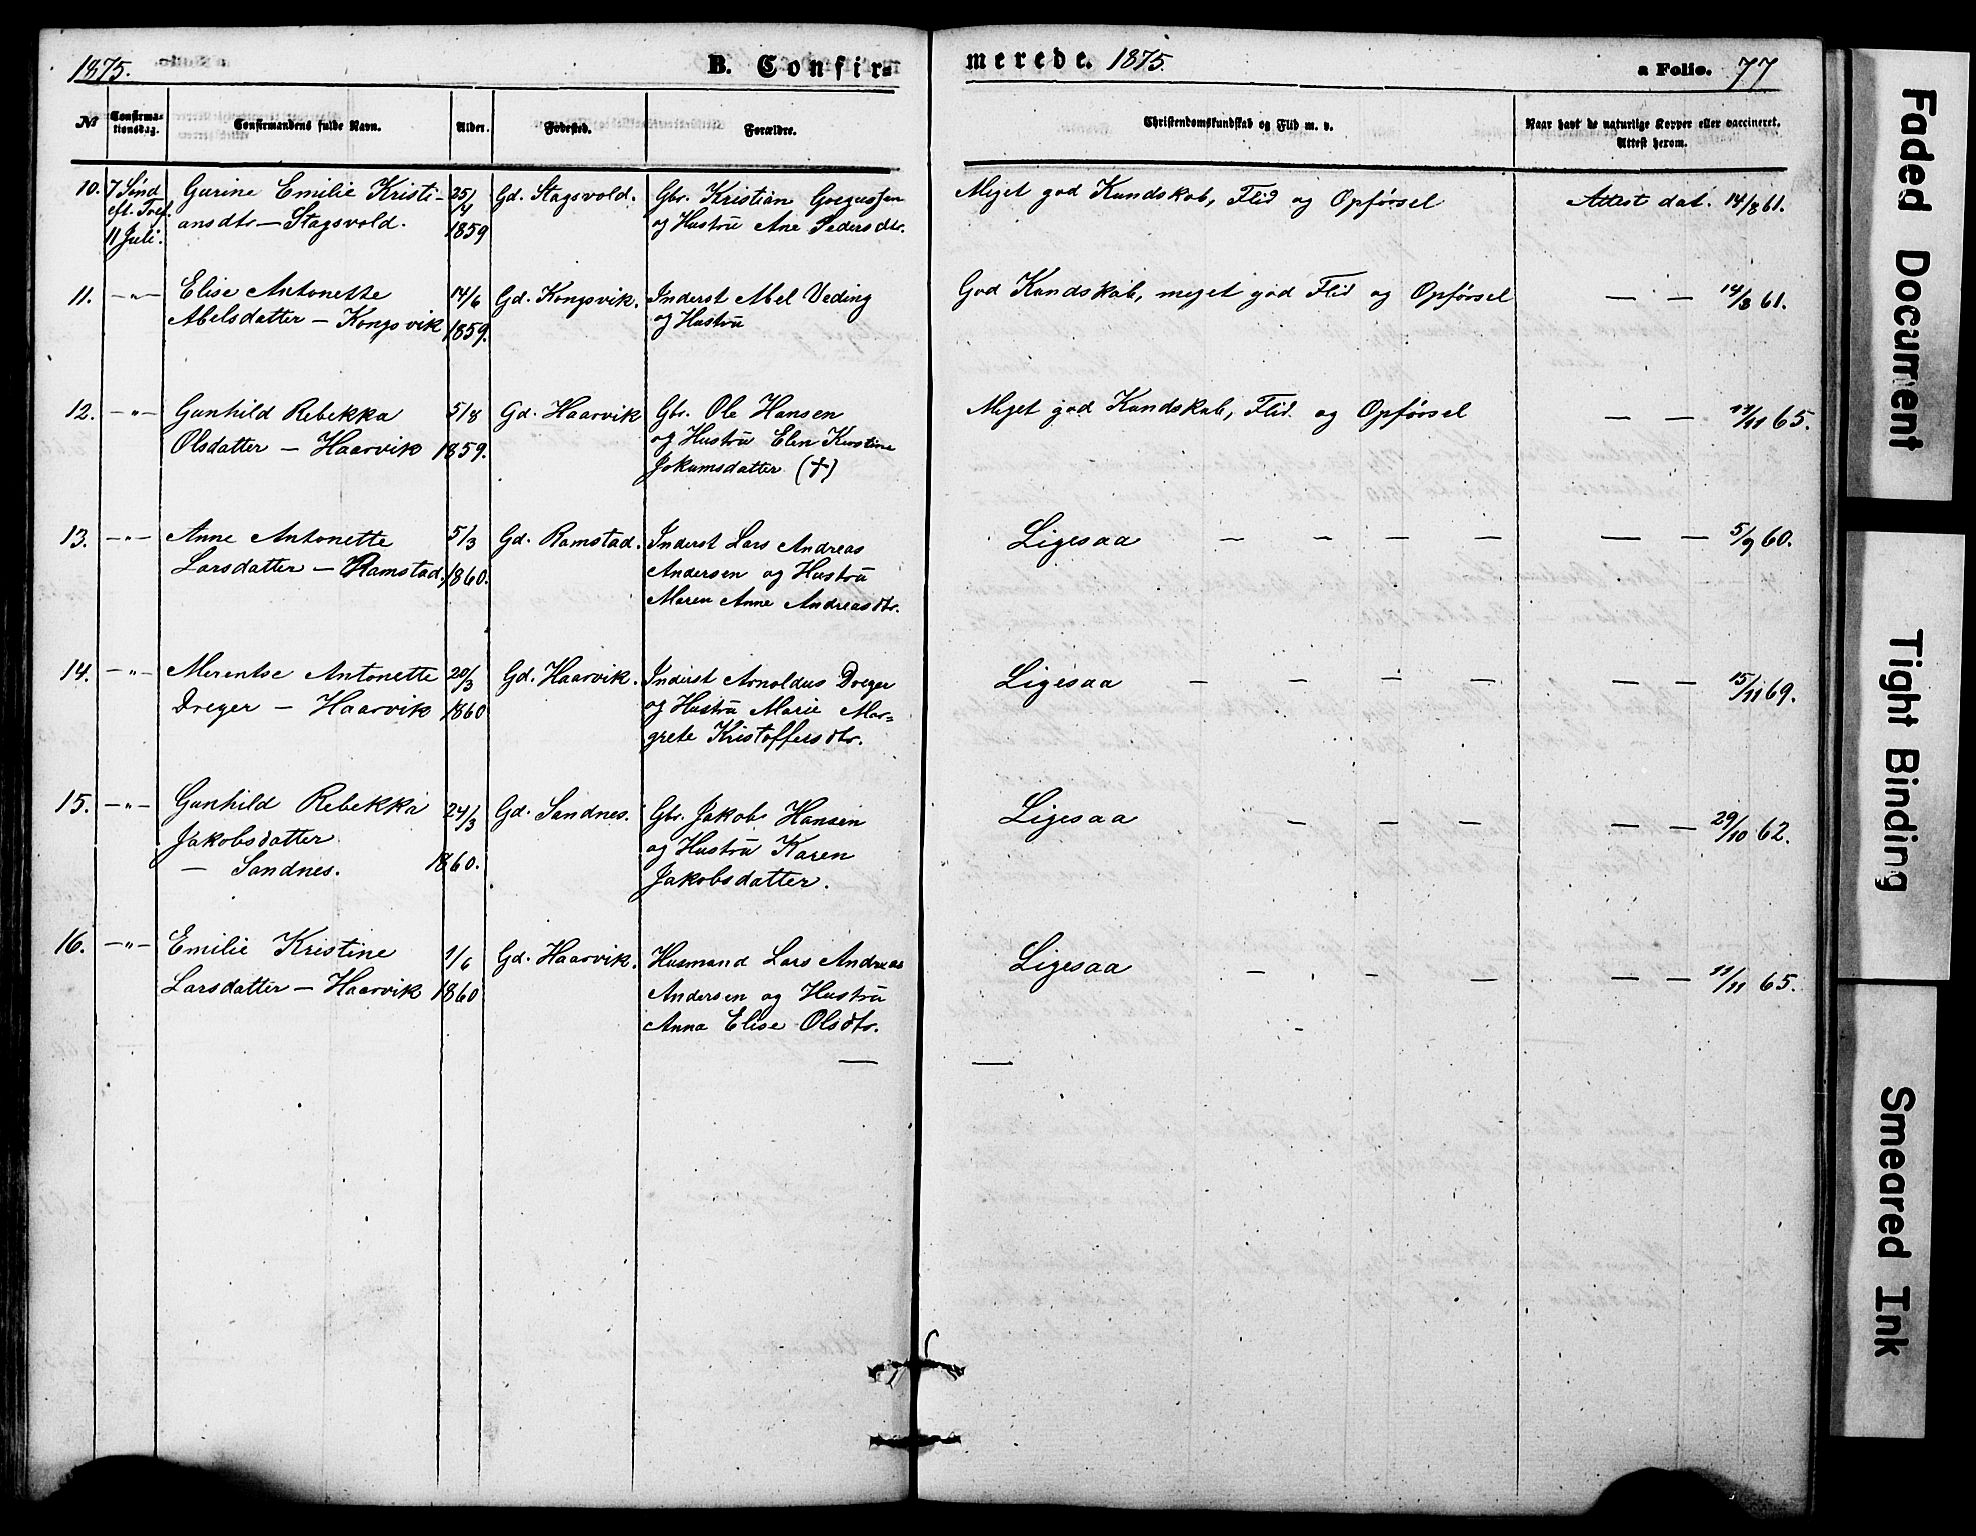 1875. B. Confir=
merede. 1875. a Folio. 77
No Confirma-tionsdag. Confirmandens fulde Navn. Alder. Fødested. Forældre. Christendomskundskab og Flid m. v. Naar havt de naturlige Kopper eller vaccineret. Attest herom.
10. 7 Sønd eft. Tref. 11 Juli.
Gurine Emilie Kristi-
ansdtr - Stagsvold.
25/4 1859
Gd. Stagsvold.
Gbr. Kristian
og Hustru Ane Pedersdtr.
Meget god Kundskab, Flid og Opførsel
Attest dat. 14/8 61.
11. -"-
Elise Antonette
Abelsdatter - Kongsvik
14/6 1859.
Gd. Kongsvik.
Inderst Abel Veding
og Hustru
God Kundskab, meget god Flid og Opførsel
— — 14/8 61.
12. -"-
Gunhild Rebekka
Olsdatter - Haarvik
5/8 1859.
Gd. Haarvik
Gbr. Ole Hansen
og Hustru Elen Kirstine
Jokumsdatter (+)
Meget god Kundskab, Flid og Opførsel
— — 11/11 65.
13. -"-
Anne Antonette
Larsdatter - Ramstad.
5/3 1860.
Gd. Ramstad.
Inderst Lars Andreas
Andersen og Hustru
Maren Anne Andreasdtr.
Ligesaa — — — — — — 5/9 60.
14. -"-
Merentse Antonette
Dreyer - Haarvik
20/3 1860
Gd. Haarvik.
Inderst Arnoldus Dreyer
og Hustru Marie Mar=
grete Kristoffersdtr.
Ligesaa — — — — — — 15/11 69.
15. -"-
Gunhild Rebekka
Jakobsdatter
- Sandnes.
24/3 1860.
Gd. Sandnes.
Gbr. Jakob Hansen
og Hustru Karen
Jakobsdatter.
Ligesaa — — — — — — 29/10 62.
16. -"-
Emilie Kristine
Larsdatter - Haarvik
1/6 1860
Gd. Haarvik.
Husmand Lars Andreas
Andersen og Hustru
Anna Elise Olsdtr.
Ligesaa — — — — — 11/11 65.
Faded Document
Tight Binding
Smeared Ink